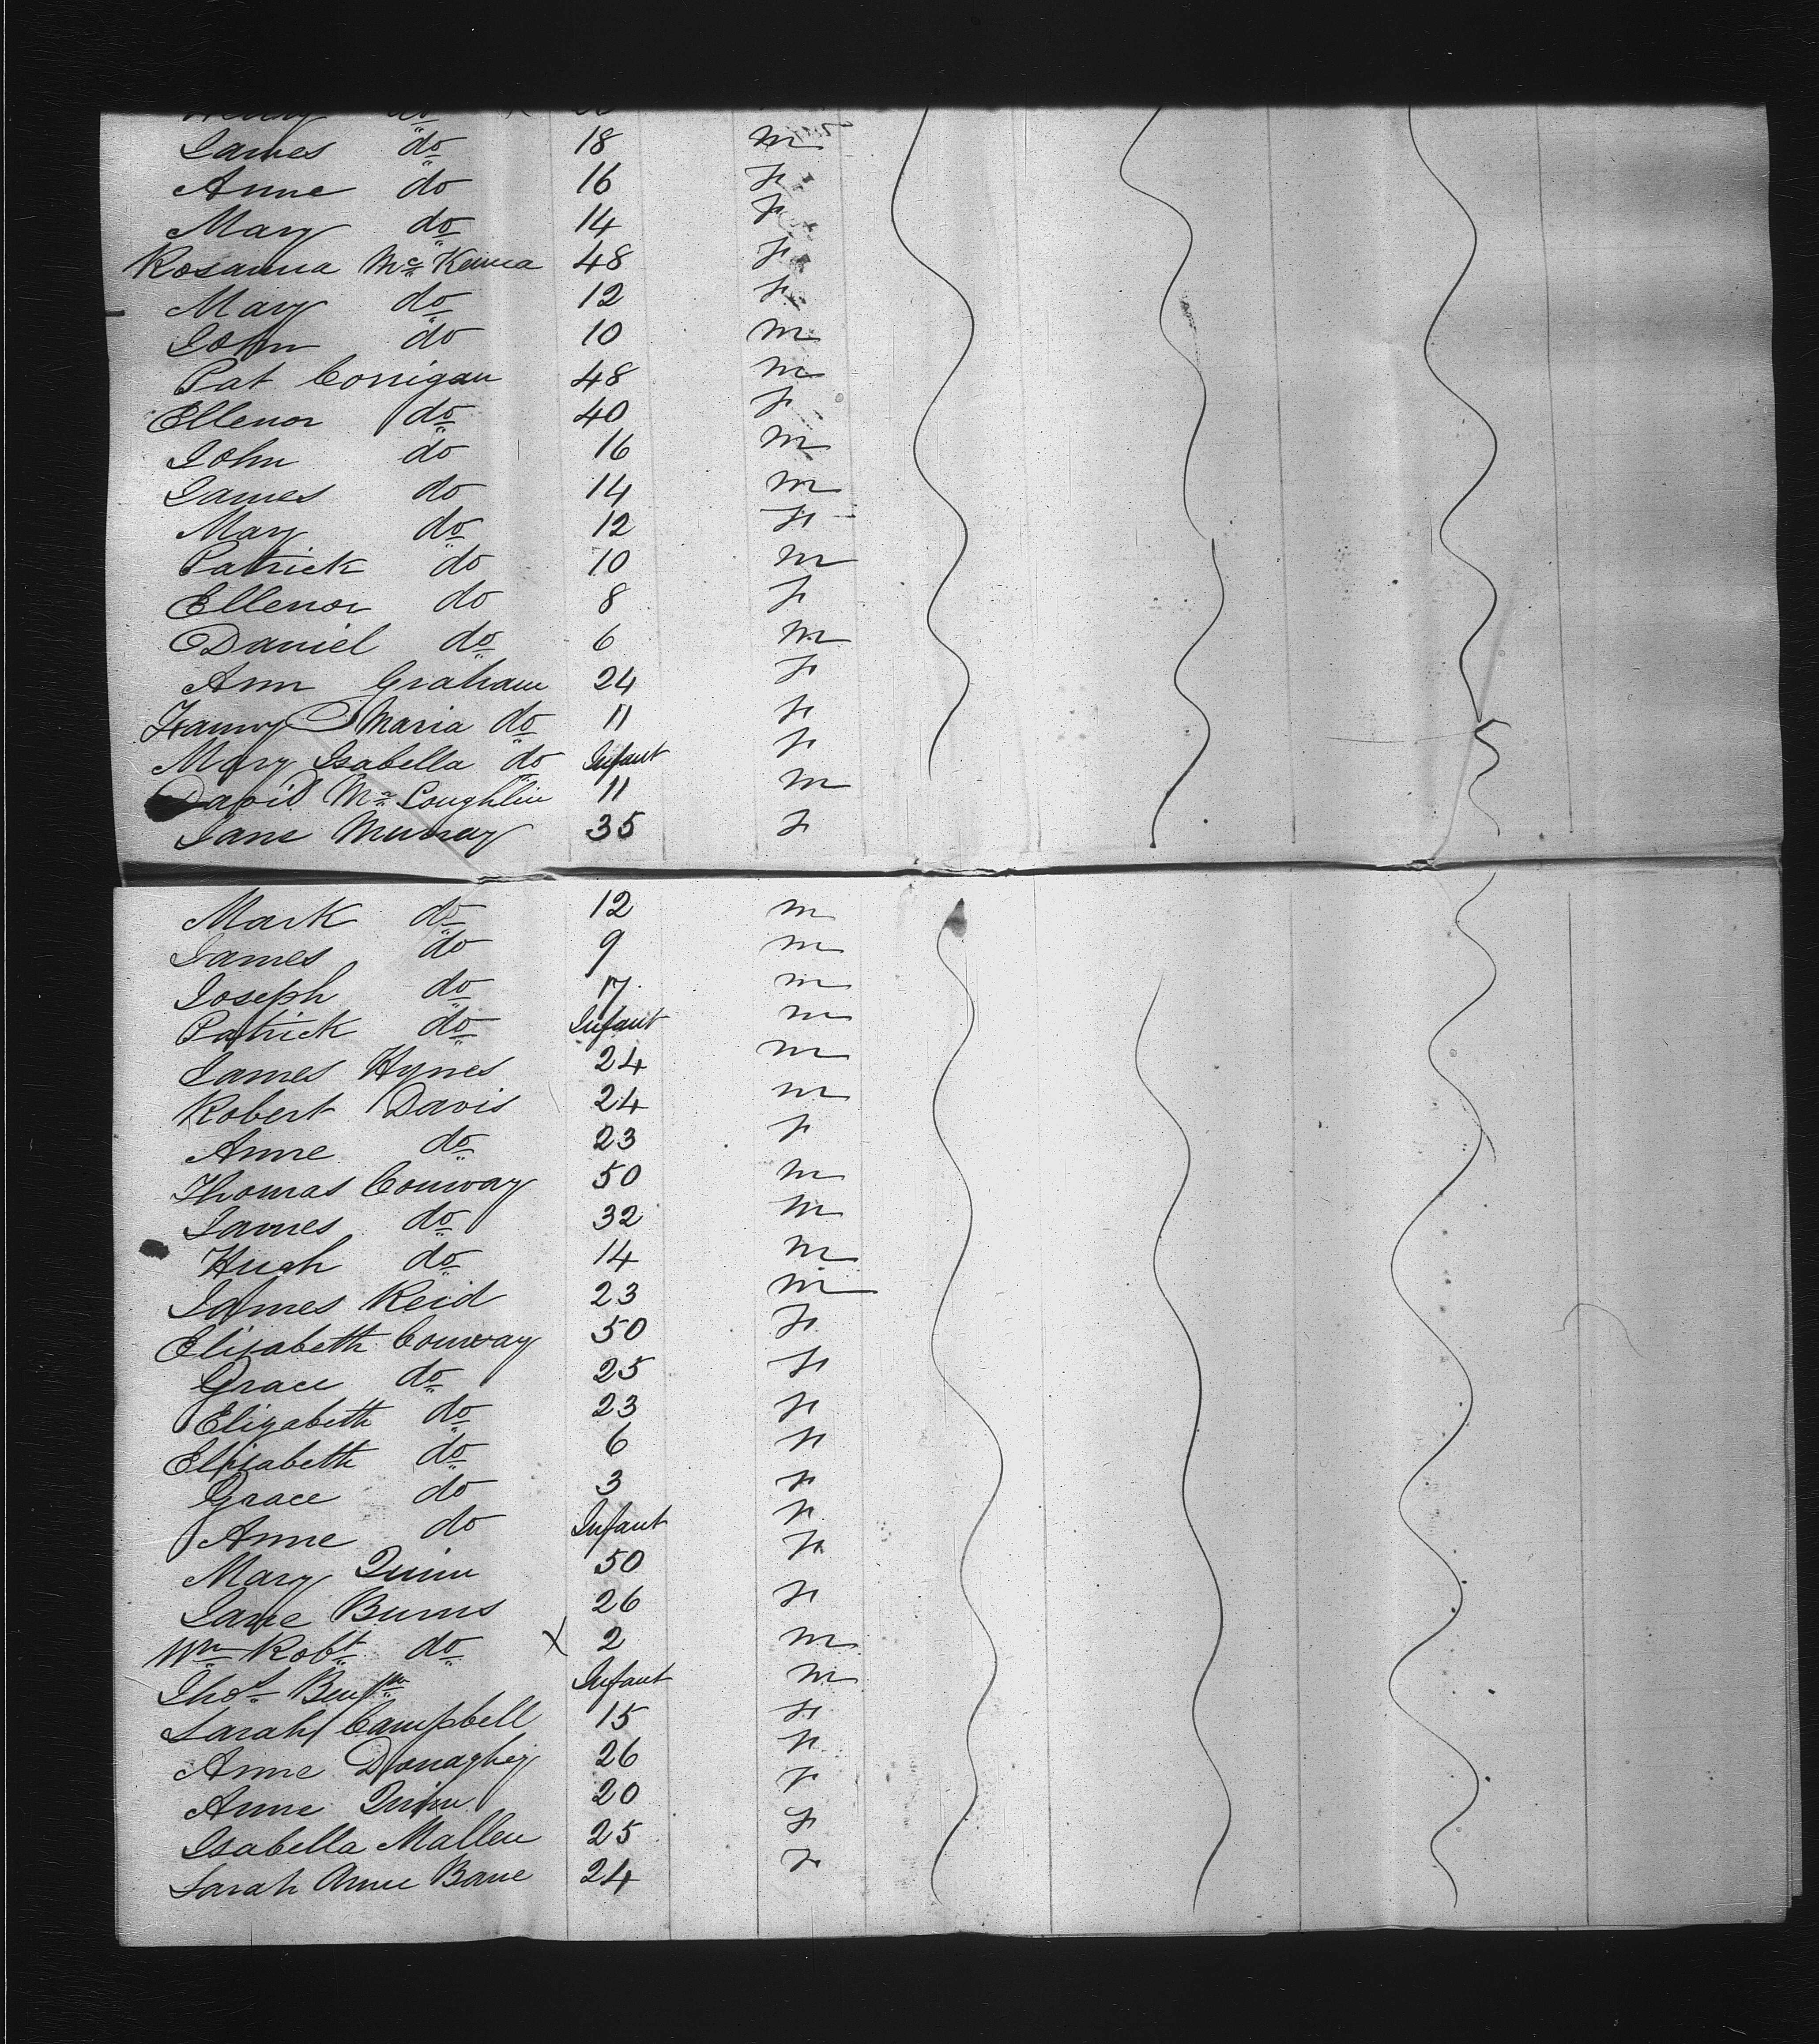 Henry do
James do 18 m
Anne do 16 f
Mary do 14 f
Rosanna McKenna 48 f
Mary do 12 f
John do 10 m
Pat Corrigan 48 m
Ellenor do 40 f
John do 16 m
James do 14 m
Mary do 12 f
Patrick do 10 m
Ellenor do 8 f
Daniel do 6 m
Ann Graham 24 f
Fanny Maria do 11 f
Mary Isabella do Infant f
David McLoughlin 11 m
Jane Murray 35 f
Mark do 12 m
James do 9 m
Joseph do 7 m
Patrick do Infant m
James Hynes 24 m
Robert Davis 24 m
Anne do 23 f
Thomas Conway 50 m
James do 32 m
Hugh do 14 m
James Reid 23 m
Elizabeth Conway 50 f
Grace do 25 f
Elizabeth do 23 f
Elizabeth do 6 f
Grace do 3 f
Anne do Infant f
Mary Quinn 50 f
Jane Burns 26 f
Wm Robt do X 2 m
Thos Benjn Infant m
Sarah Campbell 15 f
Anne Donaghey 26 f
Anne Quinn 20 f
Isabella Mallen 25 f
Sarah Anne Bane 24 f